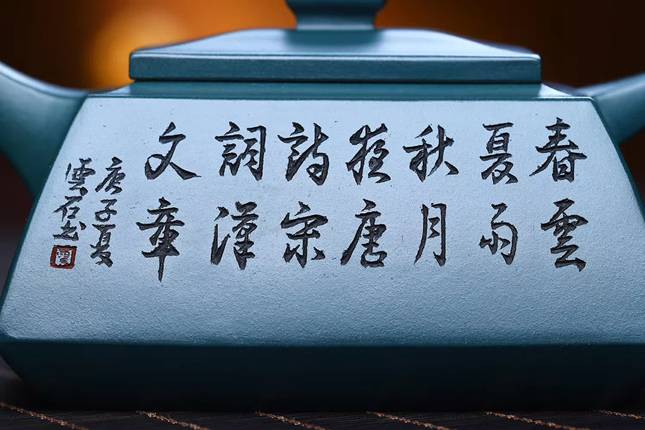 春雲
夏雨
秋月
夜唐
詩宋
詞漢
文章
庚子夏
雲石书